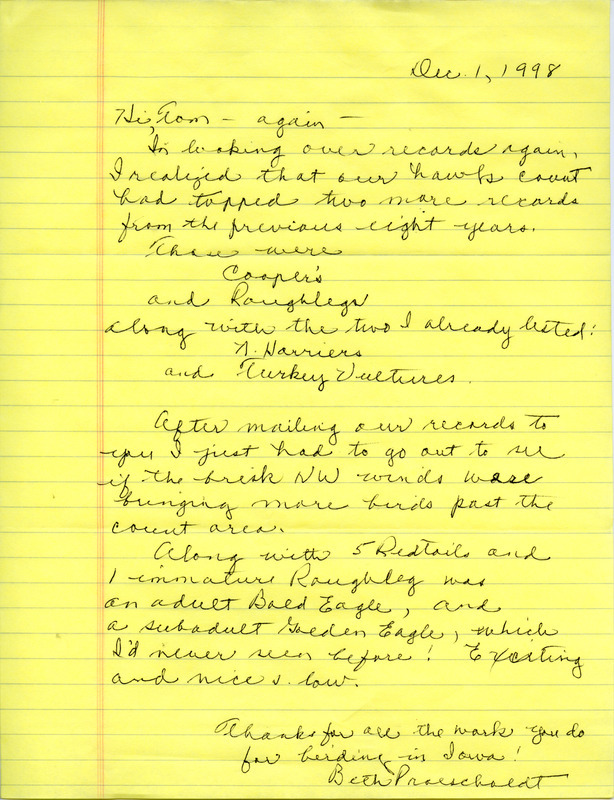 Dec. 1, 1998
Hi, Tom - again -
In looking over records again,
I realized that our hawk count
had topped two more records
from the previous eight years.
Those were
Cooper's
and Roughlegs
along with the two I already listed:
N. Harriers
and Turkey Vultures.
After mailing our records to
you I just had to go out to see
if the brisk NW winds were
bringing more birds past the
count area.
Along with 5 Redtails and
1 immature Roughleg was
an adult Bald Eagle, and
a subadult Golden Eagle, which
I'd never seen before! Exciting
and nice & low.
Thanks for all the work you do
for birding in Iowa!
Beth Proescholdt